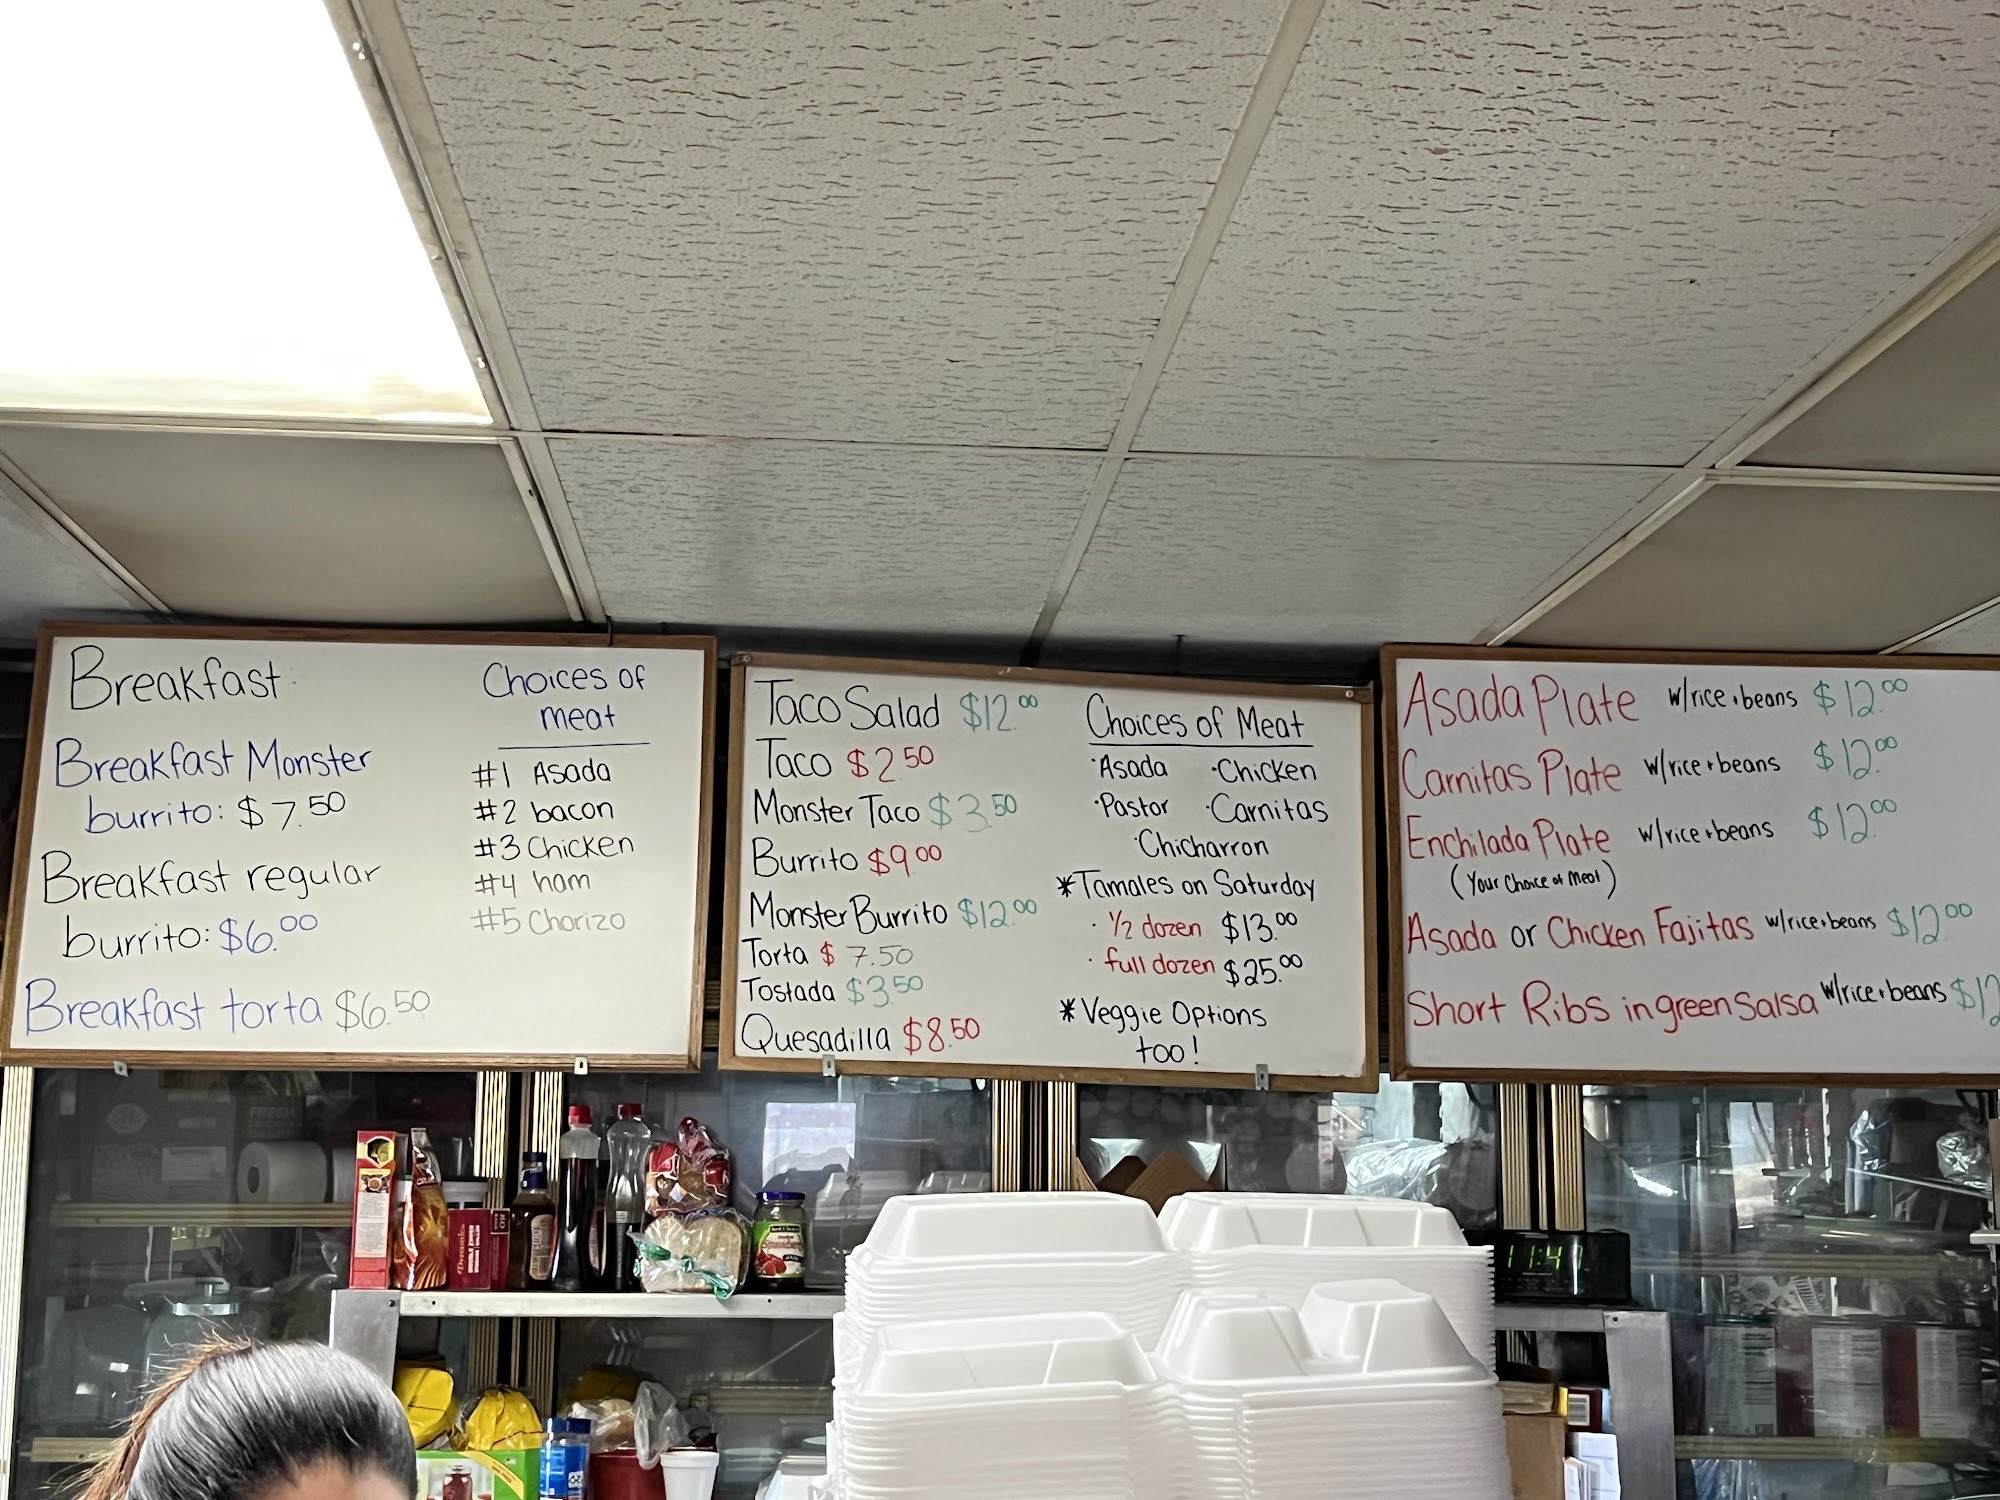 Breakfast:
Breakfast Monster
burrito: $7.50
Breakfast regular
burrito: $6.00
Breakfast torta $6.50
Choices of
meat
#1 Asada
#2 bacon
#3 Chicken
#4 ham
#5 Chorizo
Taco Salad $12.00
Taco $2.50
Monster Taco $3.50
Burrito $9.00
Monster Burrito $12.00
Torta $7.50
Tostada $3.50
Quesadilla $8.50
Choices of Meat
·Asada ·Chicken
·Pastor ·Carnitas
·Chicharron
*Tamales on Saturday
· 1/2 dozen $13.00
· full dozen $25.00
*Veggie Options
too!
Asada Plate w/rice+beans $12.00
Carnitas Plate w/rice+beans $12.00
Enchilada Plate w/rice+beans $12.00
(Your Choice of Meat)
Asada or Chicken Fajitas w/rice+beans $12.00
Short Ribs in green Salsa w/rice+beans $12
FRESH
11:4